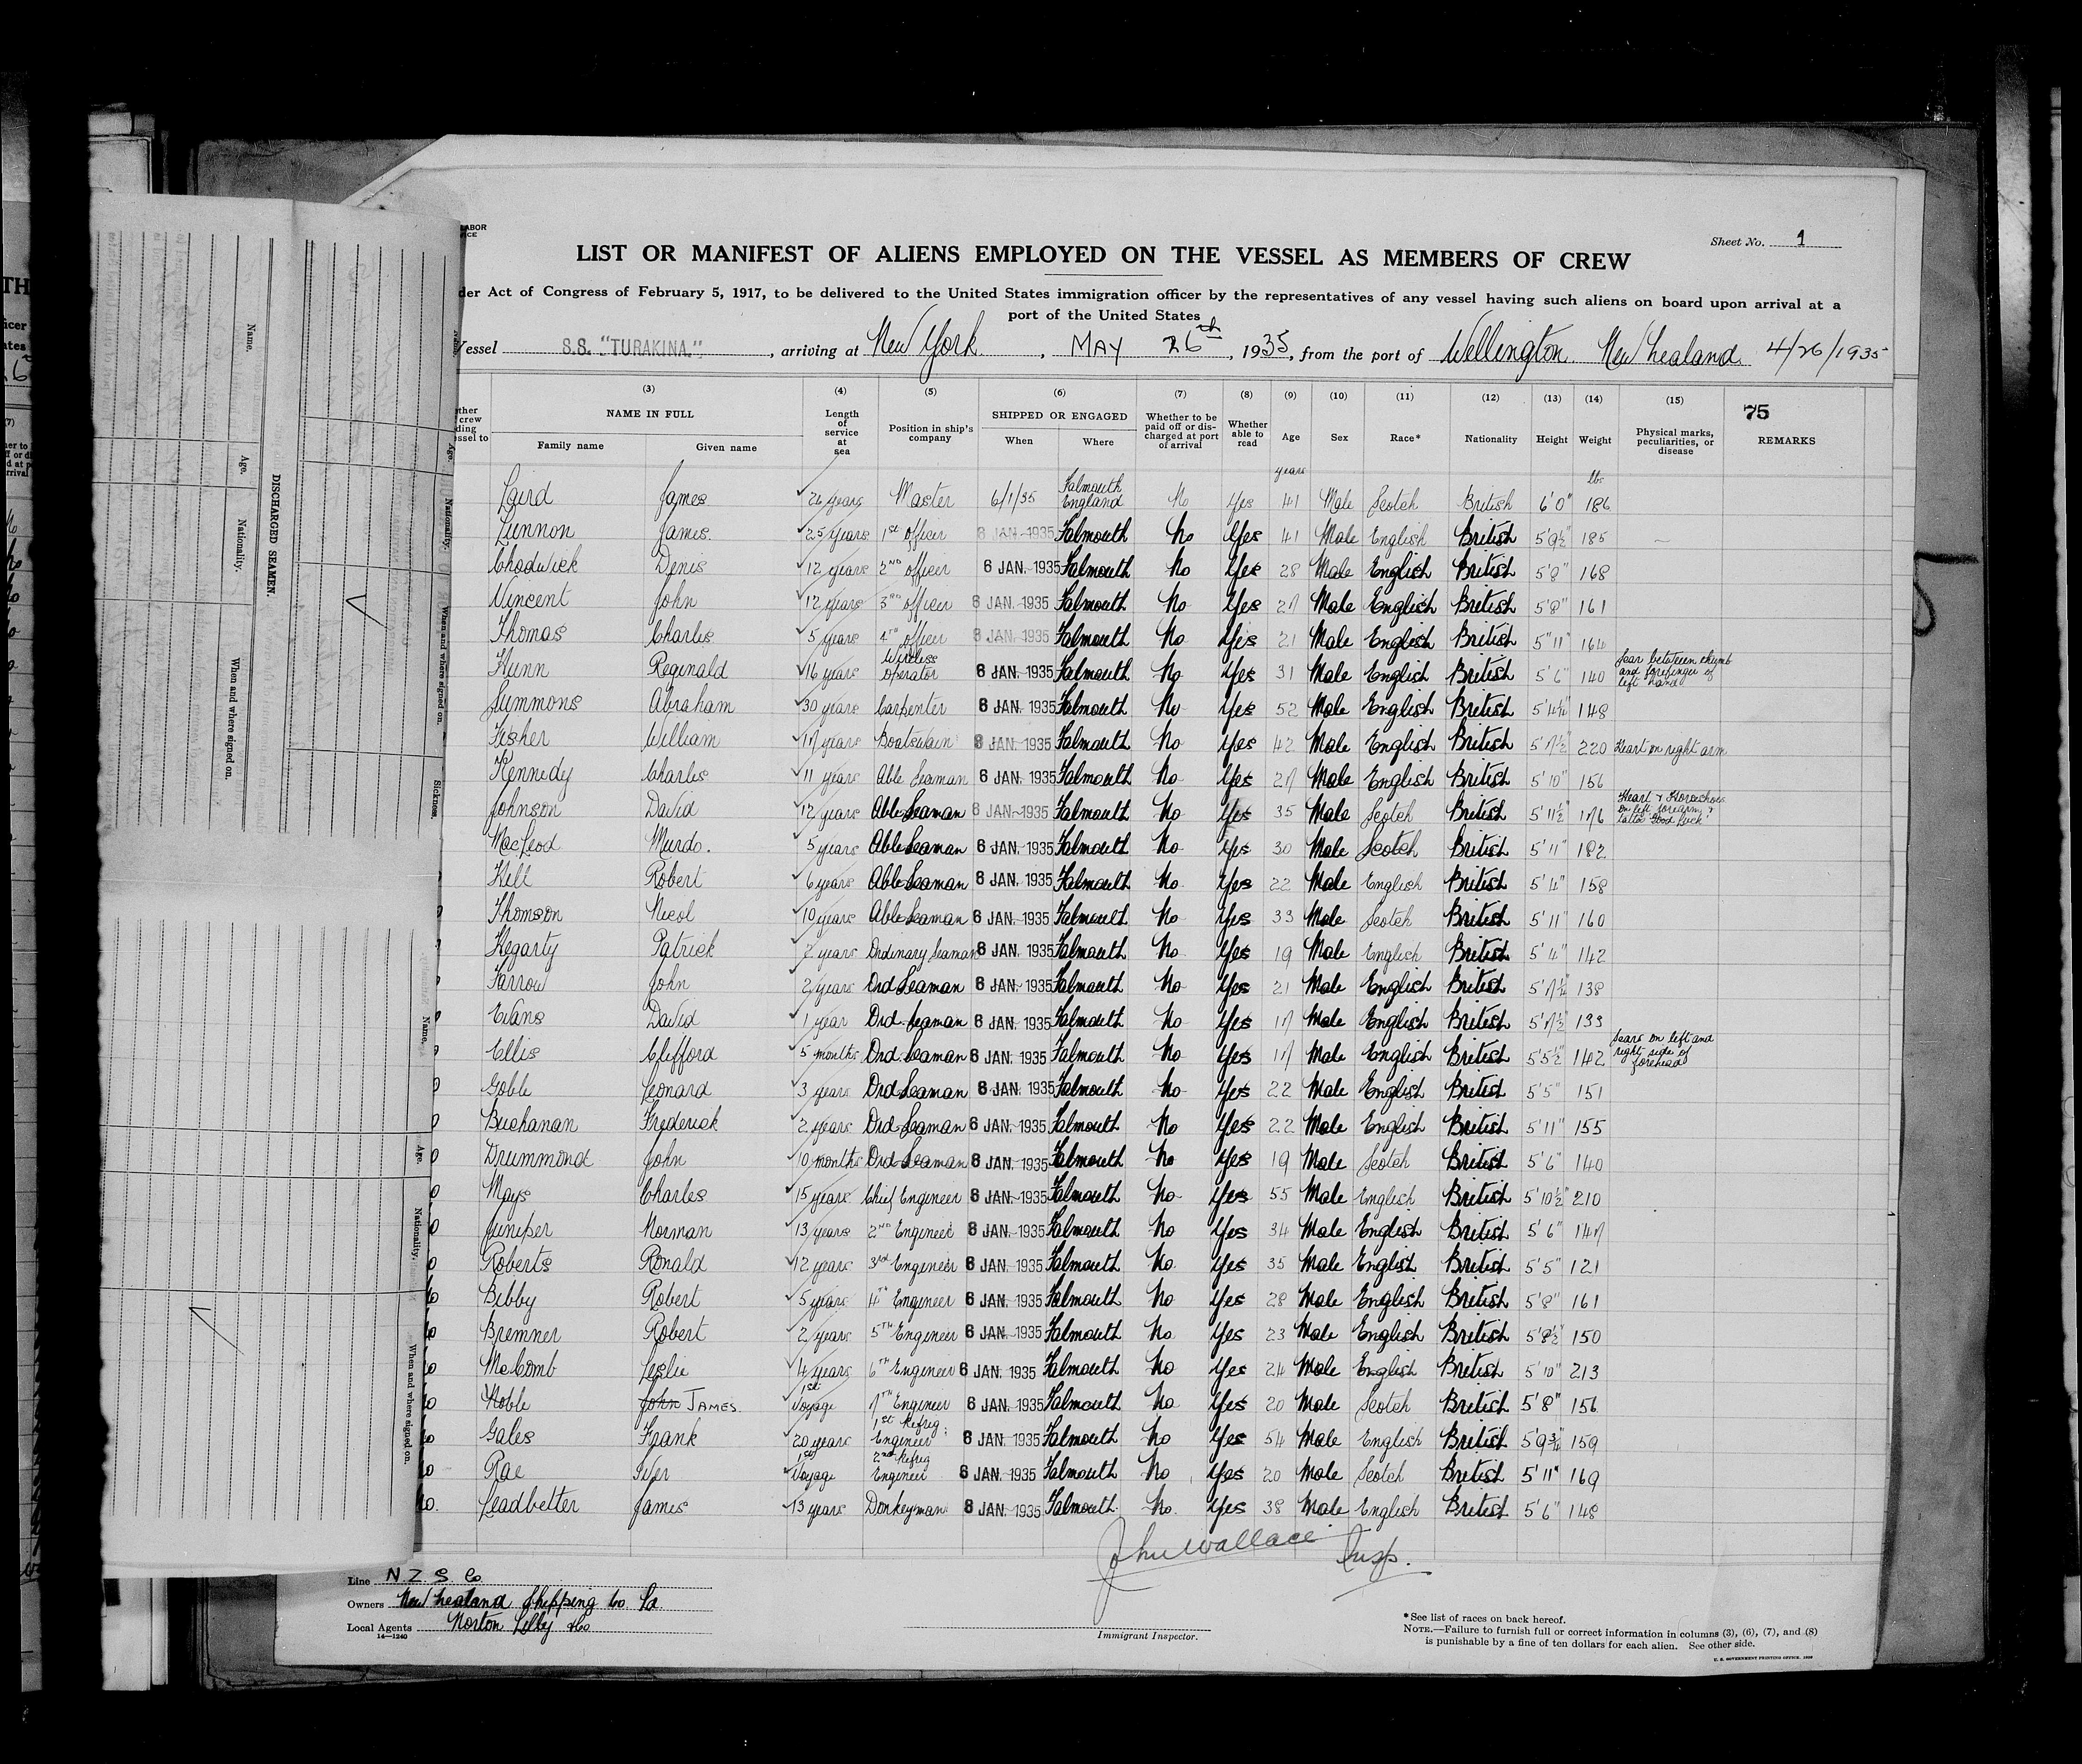 LABOR
ICE
Sheet No. 1
LIST OR MANIFEST OF ALIENS EMPLOYED ON THE VESSEL AS MEMBERS OF CREW
der Act of Congress of February 5, 1917, to be delivered to the United States immigration officer by the representatives of any vessel having such aliens on board upon arrival at a
port of the United States
Vessel S.S. "TURAKINA.", arriving at New York, MAY 26th, 1935, from the port of Wellington New Zealand 4/26/1935
(3) (4) (5) (6) (7) (8) (9) (10) (11) (12) (13) (14) (15) 75
NAME IN FULL Length of service at sea Position in ship's company SHIPPED OR ENGAGED Whether to be paid off or discharged at port of arrival Whether able to read Age Sex Race* Nationality Height Weight Physical marks, peculiarities, or disease REMARKS
Family name Given name When Where
years lbs
Laird James 26 years Master 6/1/35 Falmouth England No Yes 41 Male Scotch British 6'0" 186
Lunnon James. 25 years 1st officer 6 JAN. 1935 Falmouth No Yes 41 Male English British 5'9½ 185 —
Chadwick Denis 12 years 2ND officer 6 JAN. 1935 Falmouth No Yes 28 Male English British 5'8" 168
Vincent John 12 years 3RD officer 6 JAN. 1935 Falmouth No Yes 27 Male English British 5'8" 161
Thomas Charles 5 years 4TH officer 6 JAN. 1935 Falmouth No Yes 21 Male English British 5"11" 164
Hunn Reginald 16 years Wireless operator 6 JAN. 1935 Falmouth No Yes 31 Male English British 5'6" 140 Scar between thumb and forefinger of left hand
Summons Abraham 30 years Carpenter 6 JAN. 1935 Falmouth No Yes 52 Male English British 148
Fisher William 17 years Boatswain 6 JAN. 1935 Falmouth No Yes 42 Male English British 5'7½" 220 Heart on right arm
Kennedy Charles 11 years Able Seaman 6 JAN. 1935 Falmouth No Yes 27 Male English British 5'10" 156
Johnson David 12 years Able Seaman 6 JAN. 1935 Falmouth No Yes 35 Male Scotch British 5'11½" 176 Heart & Horseshoe on left forearm Good Luck
MacLeod Murdo. 5 years Able Seaman 6 JAN. 1935 Falmouth No Yes 30 Male Scotch British 5'11" 182
Kell Robert 6 years Able Seaman 6 JAN. 1935 Falmouth No Yes 22 Male English British 5'4" 158
Thomson Nicol 10 years Able Seaman 6 JAN. 1935 Falmouth No Yes 33 Male Scotch British 5'11" 160
Hegarty Patrick 2 years Ordinary Seaman 6 JAN. 1935 Falmouth No Yes 19 Male English British 5'4" 142
Farrow John 2 years Ord Seaman 6 JAN. 1935 Falmouth No Yes 21 Male English British 138
Evans David 1 year Ord. Seaman 6 JAN. 1935 Falmouth No Yes 17 Male English British 5'7½" 133
Ellis Clifford 5 months Ord. Seaman 6 JAN. 1935 Falmouth No Yes 17 Male English British 5'5½" 142 Scars on left and right side of forehead
Goble Leonard 3 years Ord Seaman 6 JAN. 1935 Falmouth No Yes 22 Male English British 5'5" 151
Buchanan Frederick 2 years Ord Seaman 6 JAN. 1935 Falmouth No Yes 22 Male English British 5'11" 155
Drummond John 10 months Ord Seaman 6 JAN. 1935 Falmouth No Yes 19 Male Scotch British 5'6" 140
Mays Charles 15 years Chief Engineer 6 JAN. 1935 Falmouth No Yes 55 Male English British 5'10½" 210
Juniper Norman 13 years 2ND Engineer 6 JAN. 1935 Falmouth No Yes 34 Male English British 5'6" 147
Roberts Ronald 12 years 3rd Engineer 6 JAN. 1935 Falmouth No Yes 35 Male English British 5'5" 121
Bibby Robert 5 years 4TH Engineer 6 JAN. 1935 Falmouth No Yes 28 Male English British 5'8" 161
Bremner Robert 2 years 5TH Engineer 6 JAN. 1935 Falmouth No Yes 23 Male English British 5'8½" 150
McComb Leslie 4 years 6TH Engineer 6 JAN. 1935 Falmouth No Yes 24 Male English British 5'10" 213
Noble John JAMES. 1st Voyage 7TH Engineer 6 JAN. 1935 Falmouth No Yes 20 Male Scotch British 5'8" 156
Gales Frank 20 years 1st Refrig. Engineer 6 JAN. 1935 Falmouth No Yes 54 Male English British 5'9¾" 159
Rae Iver 1st Voyage 2nd Refrig Engineer 6 JAN. 1935 Falmouth No Yes 20 Male Scotch British 5'11" 169
Leadbetter James 13 years Donkeyman 6 JAN. 1935 Falmouth No. Yes 38 Male English British 5'6" 148
John Wallace Insp.
Line N.Z.S. Co
Owners New Zealand Shipping Co. Ld.
Local Agents Norton Lilly & Co
14—1240
Immigrant Inspector.
*See list of races on back hereof.
NOTE.—Failure to furnish full or correct information in columns (3), (6), (7), and (8)
is punishable by a fine of ten dollars for each alien. See other side.
U. S. GOVERNMENT PRINTING OFFICE
DISCHARGED SEAMEN.
Name. Age. Nationality. When and where signed on.
Age. Nationality. When and where signed on. Sickness.
Name. Age. Nationality. When and where signed on.